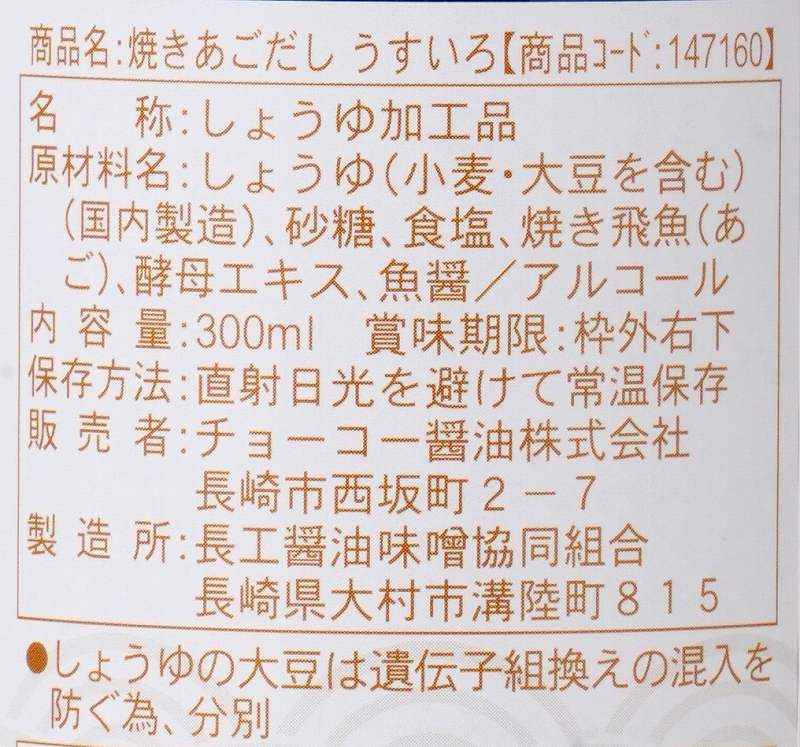 商品名:焼きあごだし うすいろ【商品コード:147160】
名　称:しょうゆ加工品
原材料名:しょうゆ(小麦・大豆を含む)
(国内製造)、砂糖、食塩、焼き飛魚(あ
ご)、酵母エキス、魚醤／アルコール
内容量:300ml　賞味期限:枠外右下
保存方法:直射日光を避けて常温保存
販売者:チョーコー醤油株式会社
長崎市西坂町２－７
製造所:長工醤油味噌協同組合
長崎県大村市溝陸町８１５
●しょうゆの大豆は遺伝子組換えの混入を
防ぐ為、分別